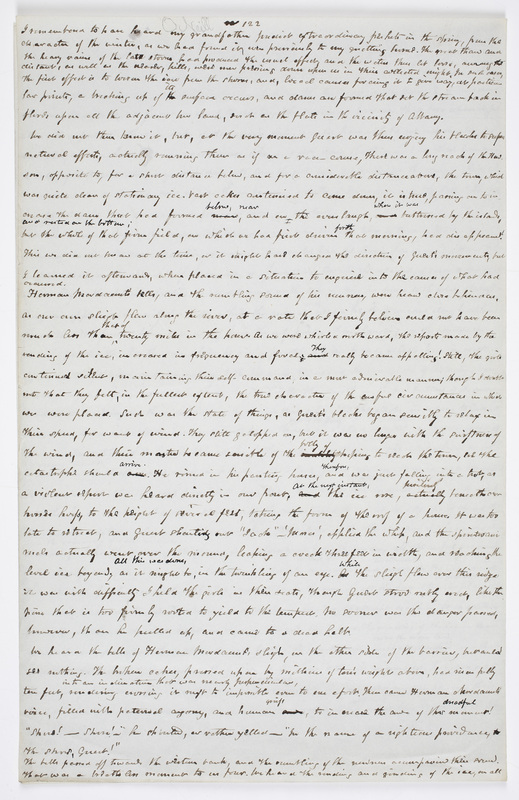 122
I remembered to have heard my grandfather predict extraordinary freshets in the spring, from the
character of the winter, as we had found it, even previously to my quitting home. The great thaw and
the heavy rains of the late storm had produced the usual effect, and the waters thus let loose, among the
distant, as well as the nearer, hills, were now pouring down upon us in their collected might. In such cases,
the first effect is to loosen the ice from the shores, and, local causes forcing it to give way, at particular
low points, a breaking up of its surface occurs, and dams are formed that set the stream back in
floods upon all the adjacent low land, such as the flats in the vicinity of Albany.
We did not then know it, but, at the very moment Guert was thus urging his blacks to super-
natural efforts, actually running them as if on a race-course, there was a long reach of the Hud-
son, opposite to, for a short distance below, and for a considerable distance above, the town, which
was quite clear of stationary ice. Vast cakes continued to come down, it is true, passing on to in-
crease the dam that had formed below, near and on the overslaugh, where it was buttressed by the islands,
and rested on the bottom;
but the whole of that firm field, on which we had first driven forth that morning, had disappeared!
This we did not know at the time, or it might have changed the direction of Guert's movements; but
I learned it afterwards, when placed in a situation to enquire into the causes of what had
occurred.
Herman Mordaunt's bells, and the rumbling sound of his runners, were heard close behind us,
as our own sleigh flew along the river, at a rate that I firmly believe could not have been
much less than that of twenty miles in the hour. As we were whirled northward, the reports made by the
rending of the ice, increased in frequency and force. They really became appalling! Still, the girls
continued silent, maintaining their self-command in a most admirable manner; though I doubt
not that they felt, in the fullest extent, the true character of the awful circumstances in which
we were placed. Such was the state of things, as Guert's blacks began sensibly to relax in
their speed, for want of wind. They still galloped on, but it was no longer with the swiftness of
the wind, and their master became sensible of the folly of hoping to reach the town, ere the
catastrophe should arrive. He reined in his panting, horses, therefore, and was just falling into a trot, as
a violent report was heard directly in our front. At the next instant, the ice rose, positively, actually beneath our
horses' hoofs, to the height of several feet, taking the form of the roof of a house. It was too
late to retreat, and Guert shouting out "Jack"—"Moses", applied the whip, and the spirited ani-
mals actually went over the mound, leaping a crack three feet in width, and reaching the
level ice beyond. All this was done, as it might be, in the twinkling of an eye. While the sleigh flew over this ridge,
it was with difficulty I held the girls in their seats, though Guert stood nobly erect, like the
pine that is too firmly rooted to yield to the tempest. No sooner was the danger passed,
however, than he pulled up, and came to a dead halt.
We heard the bells of Herman Mordaunt's sleigh, on the other side of the barrier, but could
see nothing. The broken cakes, pressed upon by millions of tons weight above, had risen fully
ten feet, into an inclination that was nearly perpendicular, rendering crossing it next to impossible even to one afoot. Then came Herman Mordaunt's
voice, filled with paternal agony, and human grief, to increase the awe of that dreadful moment!
"Shore!—Shore!"—he shouted, or rather yelled—"In the name of a righteous providence, to
the shore, Guert!"
The bells passed off towards the western bank, and the rumbling of the runners accompanied their sound.
That was a breathless moment to us four. We heard the rending and grinding of the ice, on all